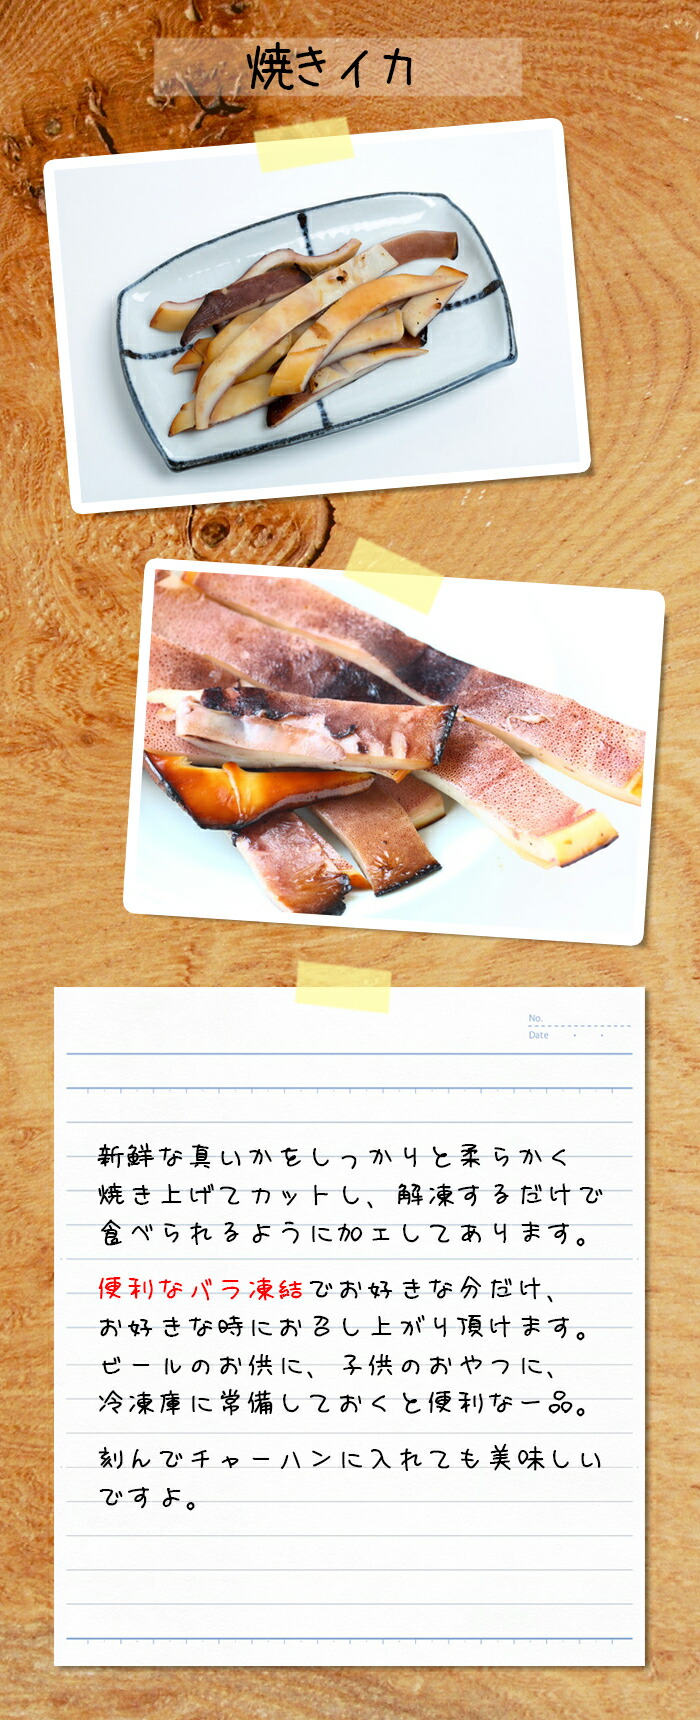 焼きイカ
No.
Date
新鮮な真いかをしっかりと柔らかく
焼き上げてカットし、解凍するだけで
食べられるように加工してあります。
便利なバラ凍結でお好きな分だけ、
お好きな時にお召し上がり頂けます。
ビールのお供に、子供のおやつに、
冷凍庫に常備しておくと便利な一品。
刻んでチャーハンに入れても美味しい
ですよ。